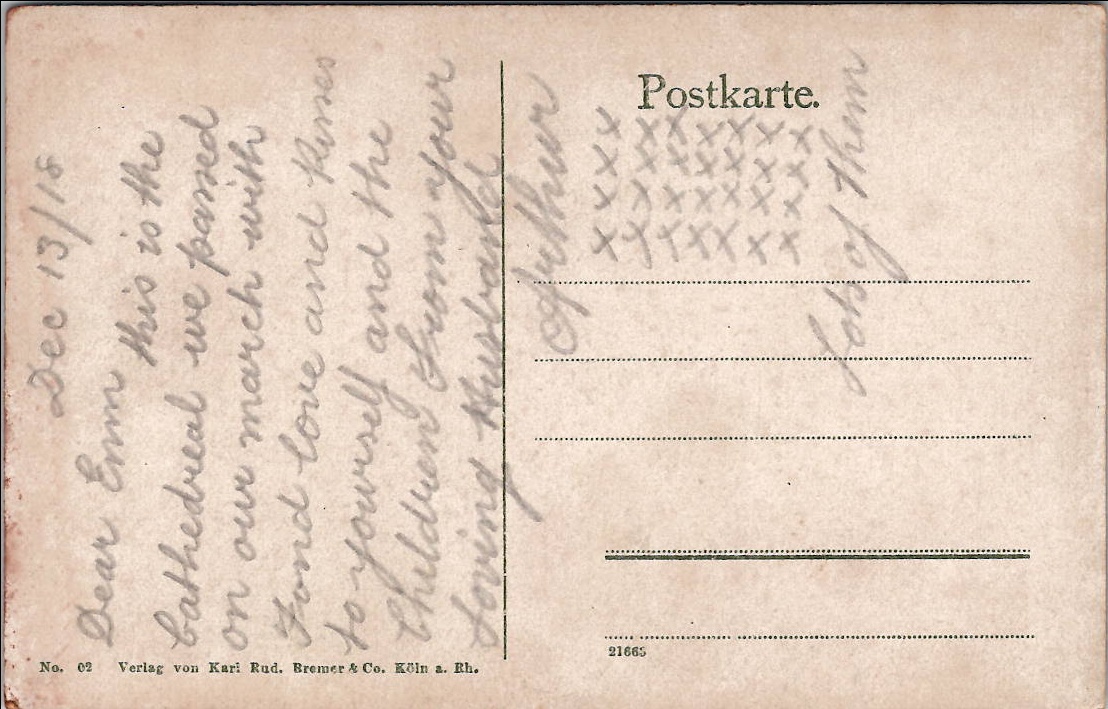 Dec 13/18
Dear Emm this is the
Cathedreal we passed
on our march with
Fond love and Kisses
to yourself and the
Children from your
loving Husband
Arthur
x x x x
x x x x
x x x x
x x x x
x x x x
x x x x
x x x x
Lots of them
Postkarte.
No. 02 Verlag von Karl Rud. Bremer & Co. Köln a. Rh.
21665